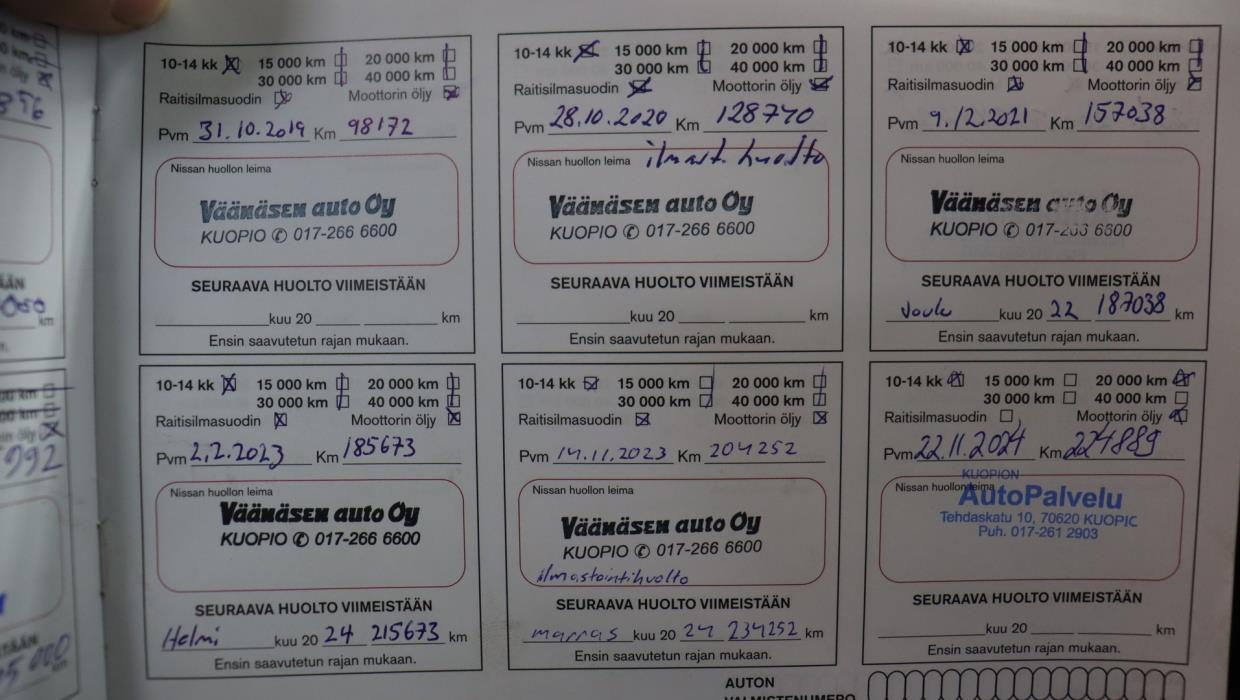 10-14 kk 15 000 km 20 000 km
30 000 km 40 000 km
Raitisilmasuodin Moottorin öljy
Pvm 31.10.2019 Km 98172
Nissan huollon leima
Väänäsen auto Oy
KUOPIO ✆ 017-266 6600
SEURAAVA HUOLTO VIIMEISTÄÄN
kuu 20 km
Ensin saavutetun rajan mukaan.
10-14 kk 15 000 km 20 000 km
30 000 km 40 000 km
Raitisilmasuodin Moottorin öljy
Pvm 28.10.2020 Km 128740
Nissan huollon leima ilmast. huolto
Väänäsen auto Oy
KUOPIO ✆ 017-266 6600
SEURAAVA HUOLTO VIIMEISTÄÄN
kuu 20 km
Ensin saavutetun rajan mukaan.
10-14 kk 15 000 km 20 000 km
30 000 km 40 000 km
Raitisilmasuodin Moottorin öljy
Pvm 9.12.2021 Km 157038
Nissan huollon leima
Väänäsen auto Oy
KUOPIO ✆ 017-266 6600
SEURAAVA HUOLTO VIIMEISTÄÄN
Joulu kuu 20 22 187038 km
Ensin saavutetun rajan mukaan.
10-14 kk 15 000 km 20 000 km
30 000 km 40 000 km
Raitisilmasuodin Moottorin öljy
Pvm 2.2.2023 Km 185673
Nissan huollon leima
Väänäsen auto Oy
KUOPIO ✆ 017-266 6600
SEURAAVA HUOLTO VIIMEISTÄÄN
Helmi kuu 20 24 215673 km
Ensin saavutetun rajan mukaan.
10-14 kk 15 000 km 20 000 km
30 000 km 40 000 km
Raitisilmasuodin Moottorin öljy
Pvm 14.11.2023 Km 204252
Nissan huollon leima
Väänäsen auto Oy
KUOPIO ✆ 017-266 6600
ilmastointihuolto
SEURAAVA HUOLTO VIIMEISTÄÄN
marras kuu 20 24 234252 km
Ensin saavutetun rajan mukaan.
10-14 kk 15 000 km 20 000 km
30 000 km 40 000 km
Raitisilmasuodin Moottorin öljy
Pvm 22.11.2024 Km 224889
KUOPION
Nissan huollon leima
AutoPalvelu
Tehdaskatu 10, 70620 KUOPIO
Puh. 017-261 2903
SEURAAVA HUOLTO VIIMEISTÄÄN
kuu 20 km
Ensin saavutetun rajan mukaan.
AUTON